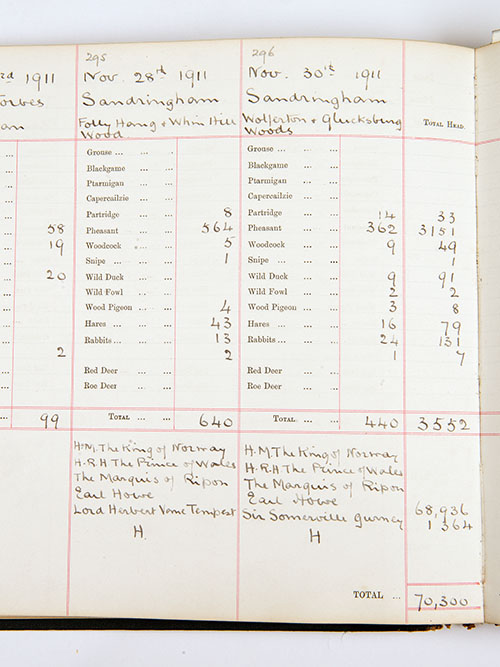 rd 1911
Forbes
an
58
19
20
2
99
295
Nov. 28th 1911
Sandringham
Folly Hang & Whin Hill
Wood
Grouse ... ... ...
Blackgame ... ...
Ptarmigan ... ...
Capercailzie ... ...
Partridge ... ... 8
Pheasant ... ... 564
Woodcock ... ... 5
Snipe ... ... ... 1
Wild Duck ... ...
Wild Fowl ... ...
Wood Pigeon ... ... 4
Hares ... ... ... 43
Rabbits ... ... ... 13
2
Red Deer ... ...
Roe Deer ... ...
TOTAL ... ... 640
H.M. The King of Norway
H.R.H The Prince of Wales
The Marquis of Ripon
Earl Howe
Lord Herbert Vane Tempest
H.
296
Nov. 30th 1911
Sandringham
Wolferton & Glucksburg
Woods
Grouse ... ... ...
Blackgame ... ...
Ptarmigan ... ...
Capercailzie ... ...
Partridge ... ... 14
Pheasant ... ... 362
Woodcock ... ... 9
Snipe ... ... ...
Wild Duck ... ... 9
Wild Fowl ... ... 2
Wood Pigeon ... ... 3
Hares ... ... ... 16
Rabbits ... ... ... 24
1
Red Deer ... ...
Roe Deer ... ...
TOTAL ... ... 440
H.M The King of Norway
H.R.H The Prince of Wales
The Marquis of Ripon
Earl Howe
Sir Somerville Gurney
H
TOTAL HEAD.
33
3151
49
1
91
2
8
79
131
7
3552
68,936
1 364
TOTAL ... 70,300